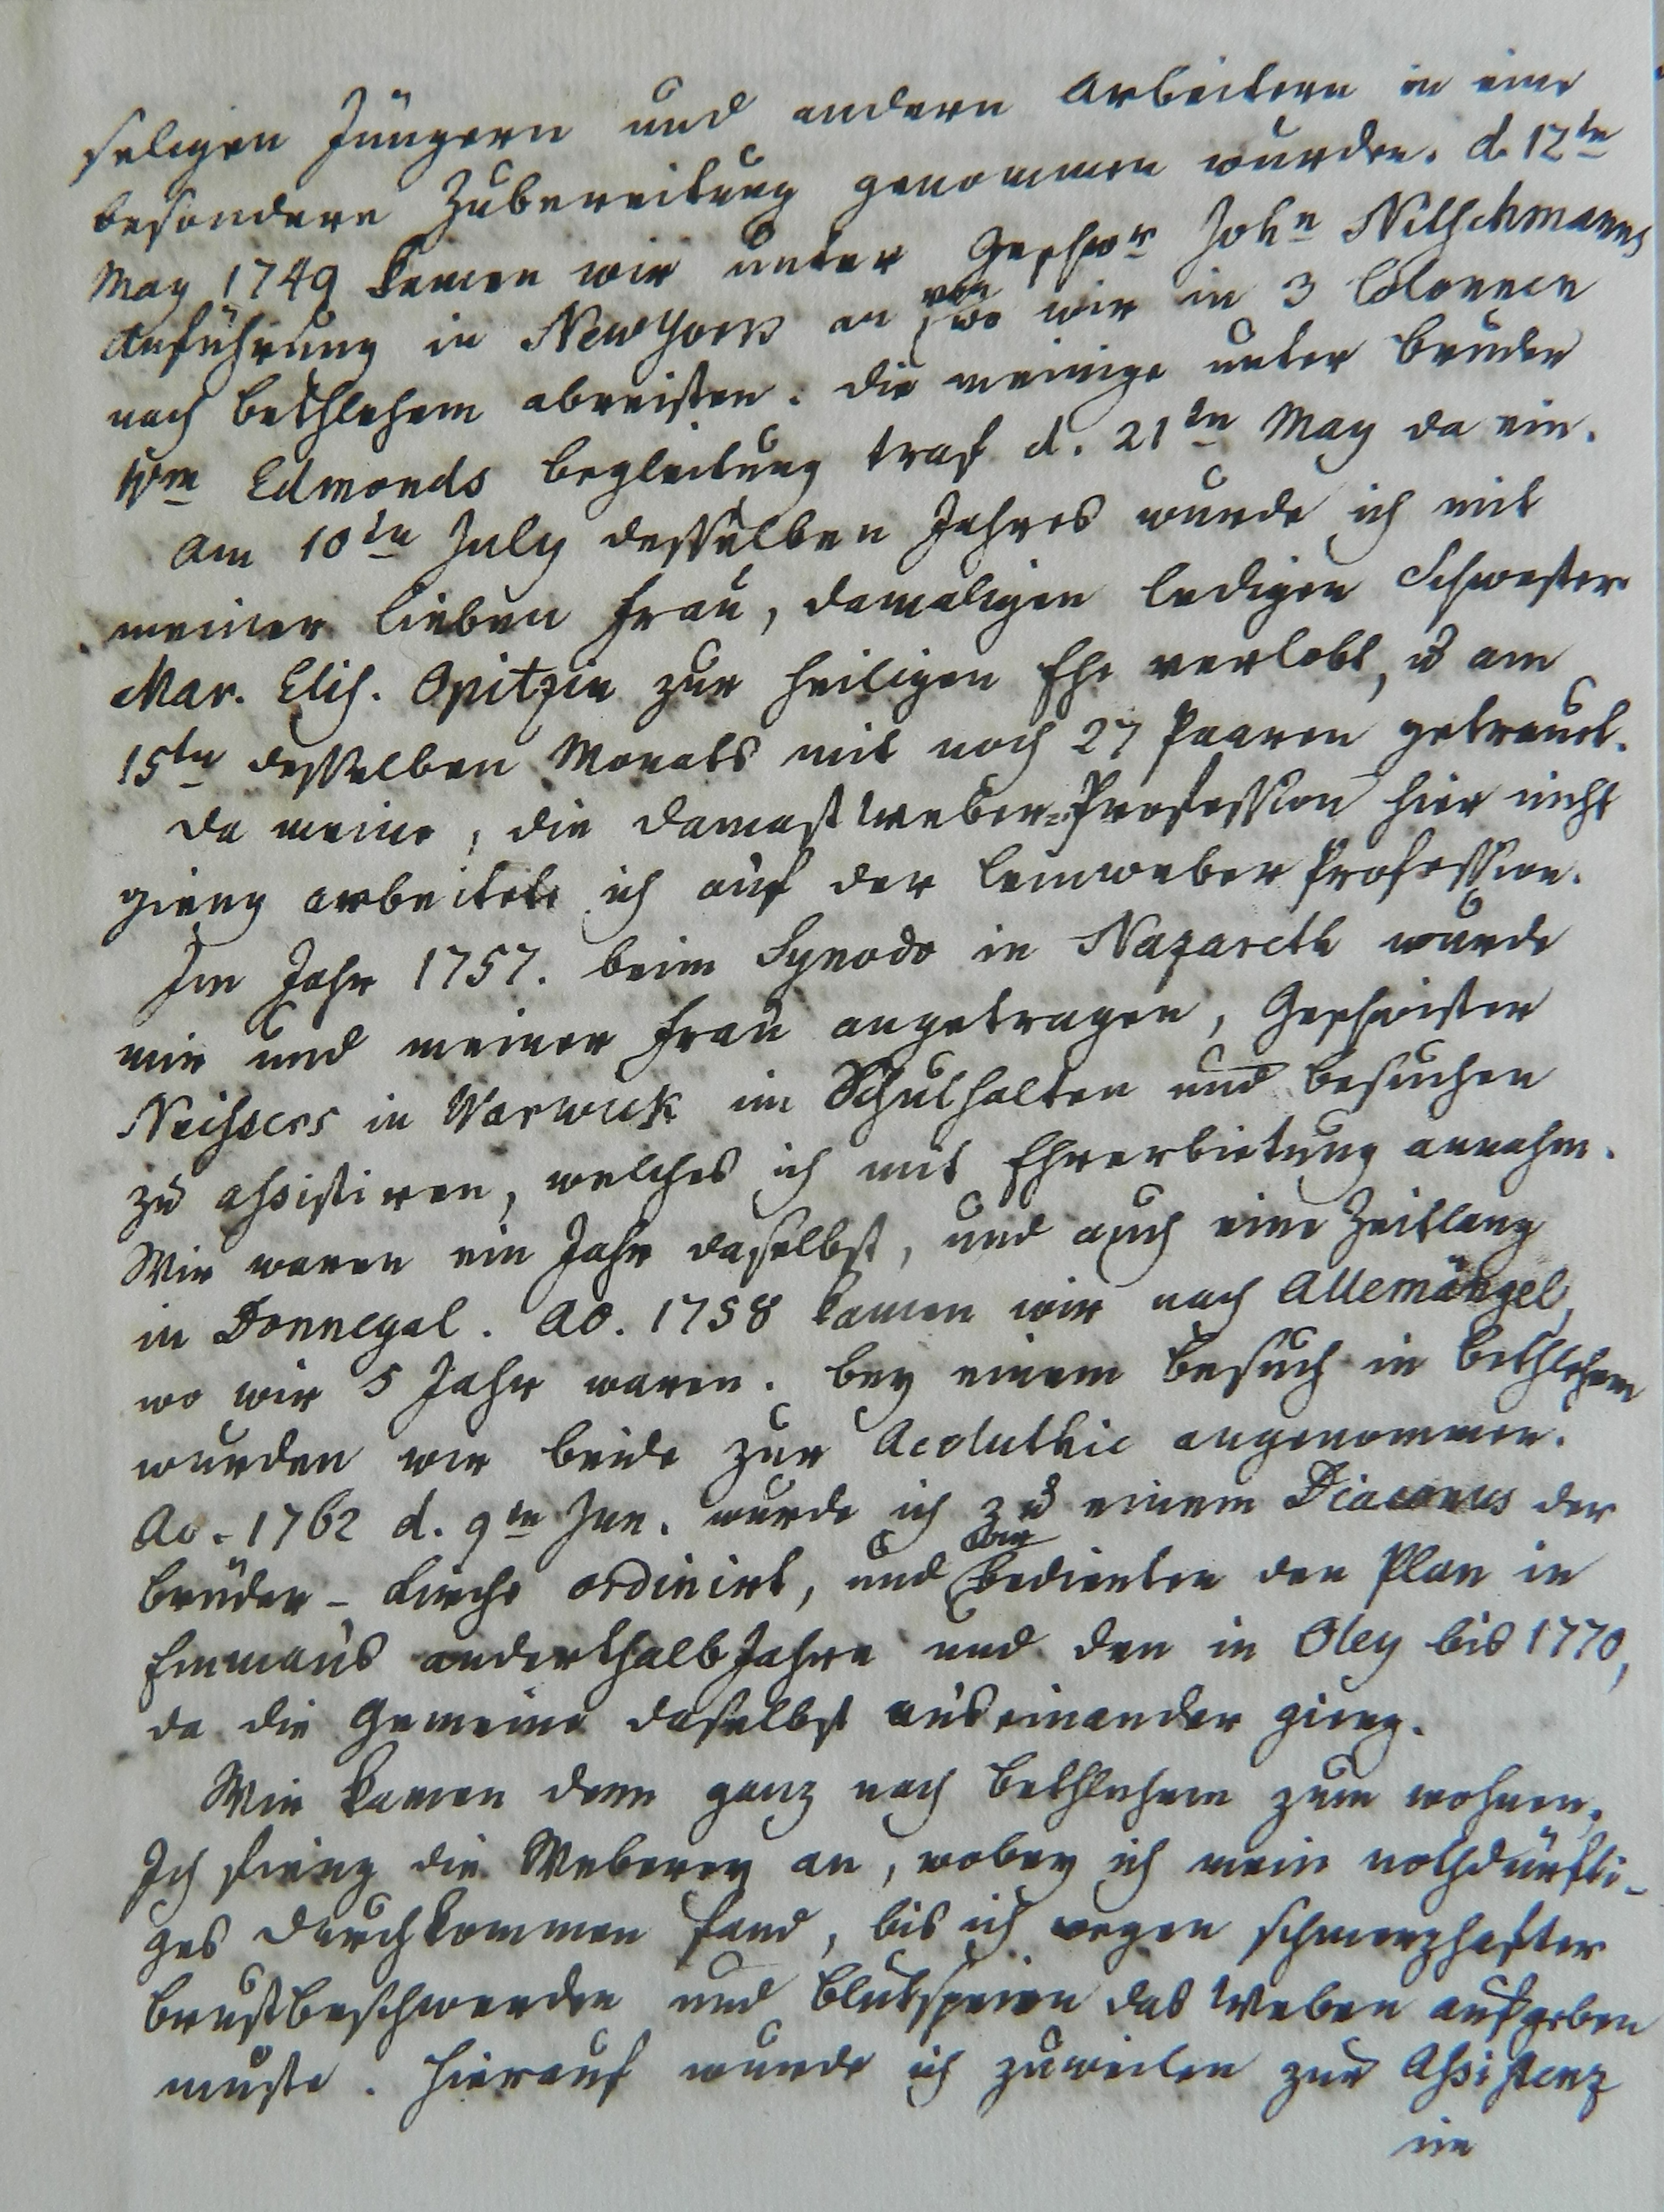 seligen Jüngern und andern Arbeitern in eine
besondere Zubereitung genommen wurden. d. 12tn
May 1749 kamen wir unter Geschwr John Nitschmanns
Anführung in NewYork an, von wo wir in 3 Colonnen
nach Bethlehem abreisten. Die meinige unter Bruder
Wm Edmonds Begleitung traf d. 21tn May da ein.
Am 10tn July desselben Jahres wurde ich mit
meiner lieben Frau, damaligen ledigen Schwester
Mar. Elis. Opitzin zur heiligen Ehe verlobt, u am
15tn desselben Monats mit noch 27 Paaren getraut.
Da meine, die Damastweber=Profession hier nicht
gieng arbeitete ich auf der Leinweber Profession.
Im Jahr 1757. beim Synodo in Nazareth wurde
mir und meiner Frau angetragen, Geschwister
Neissers in Warwick im Schulhalten und Besuchen
zu assistiren, welches ich mit Ehrerbietung annahm.
Wir waren ein Jahr daselbst, und auch eine Zeitlang
in Donnegal. Ao. 1758 kamen wir nach Allemängel,
wo wir 5 Jahr waren. Bey einem Besuch in Bethlehem
wurden wir beide zur Acoluthie angenommen.
Ao. 1762 d. 9tn Jun. wurde ich zu einem Diaconus der
Brüder-Kirche ordinirt, und wir bedienten den Plan in
Emmaus anderthalb Jahre und den in Oley bis 1770,
da die Gemeine daselbst auseinander gieng.
Wir kamen denn ganz nach Bethlehem zum wohnen,
Ich fieng die Weberey an, wobey ich mein nothdürfti-
ges Durchkommen fand, bis ich wegen schmerzhafter
Brustbeschwerden und Blutspeien das Weben aufgeben
muste. Hierauf wurde ich zuweilen zur Assistenz
im